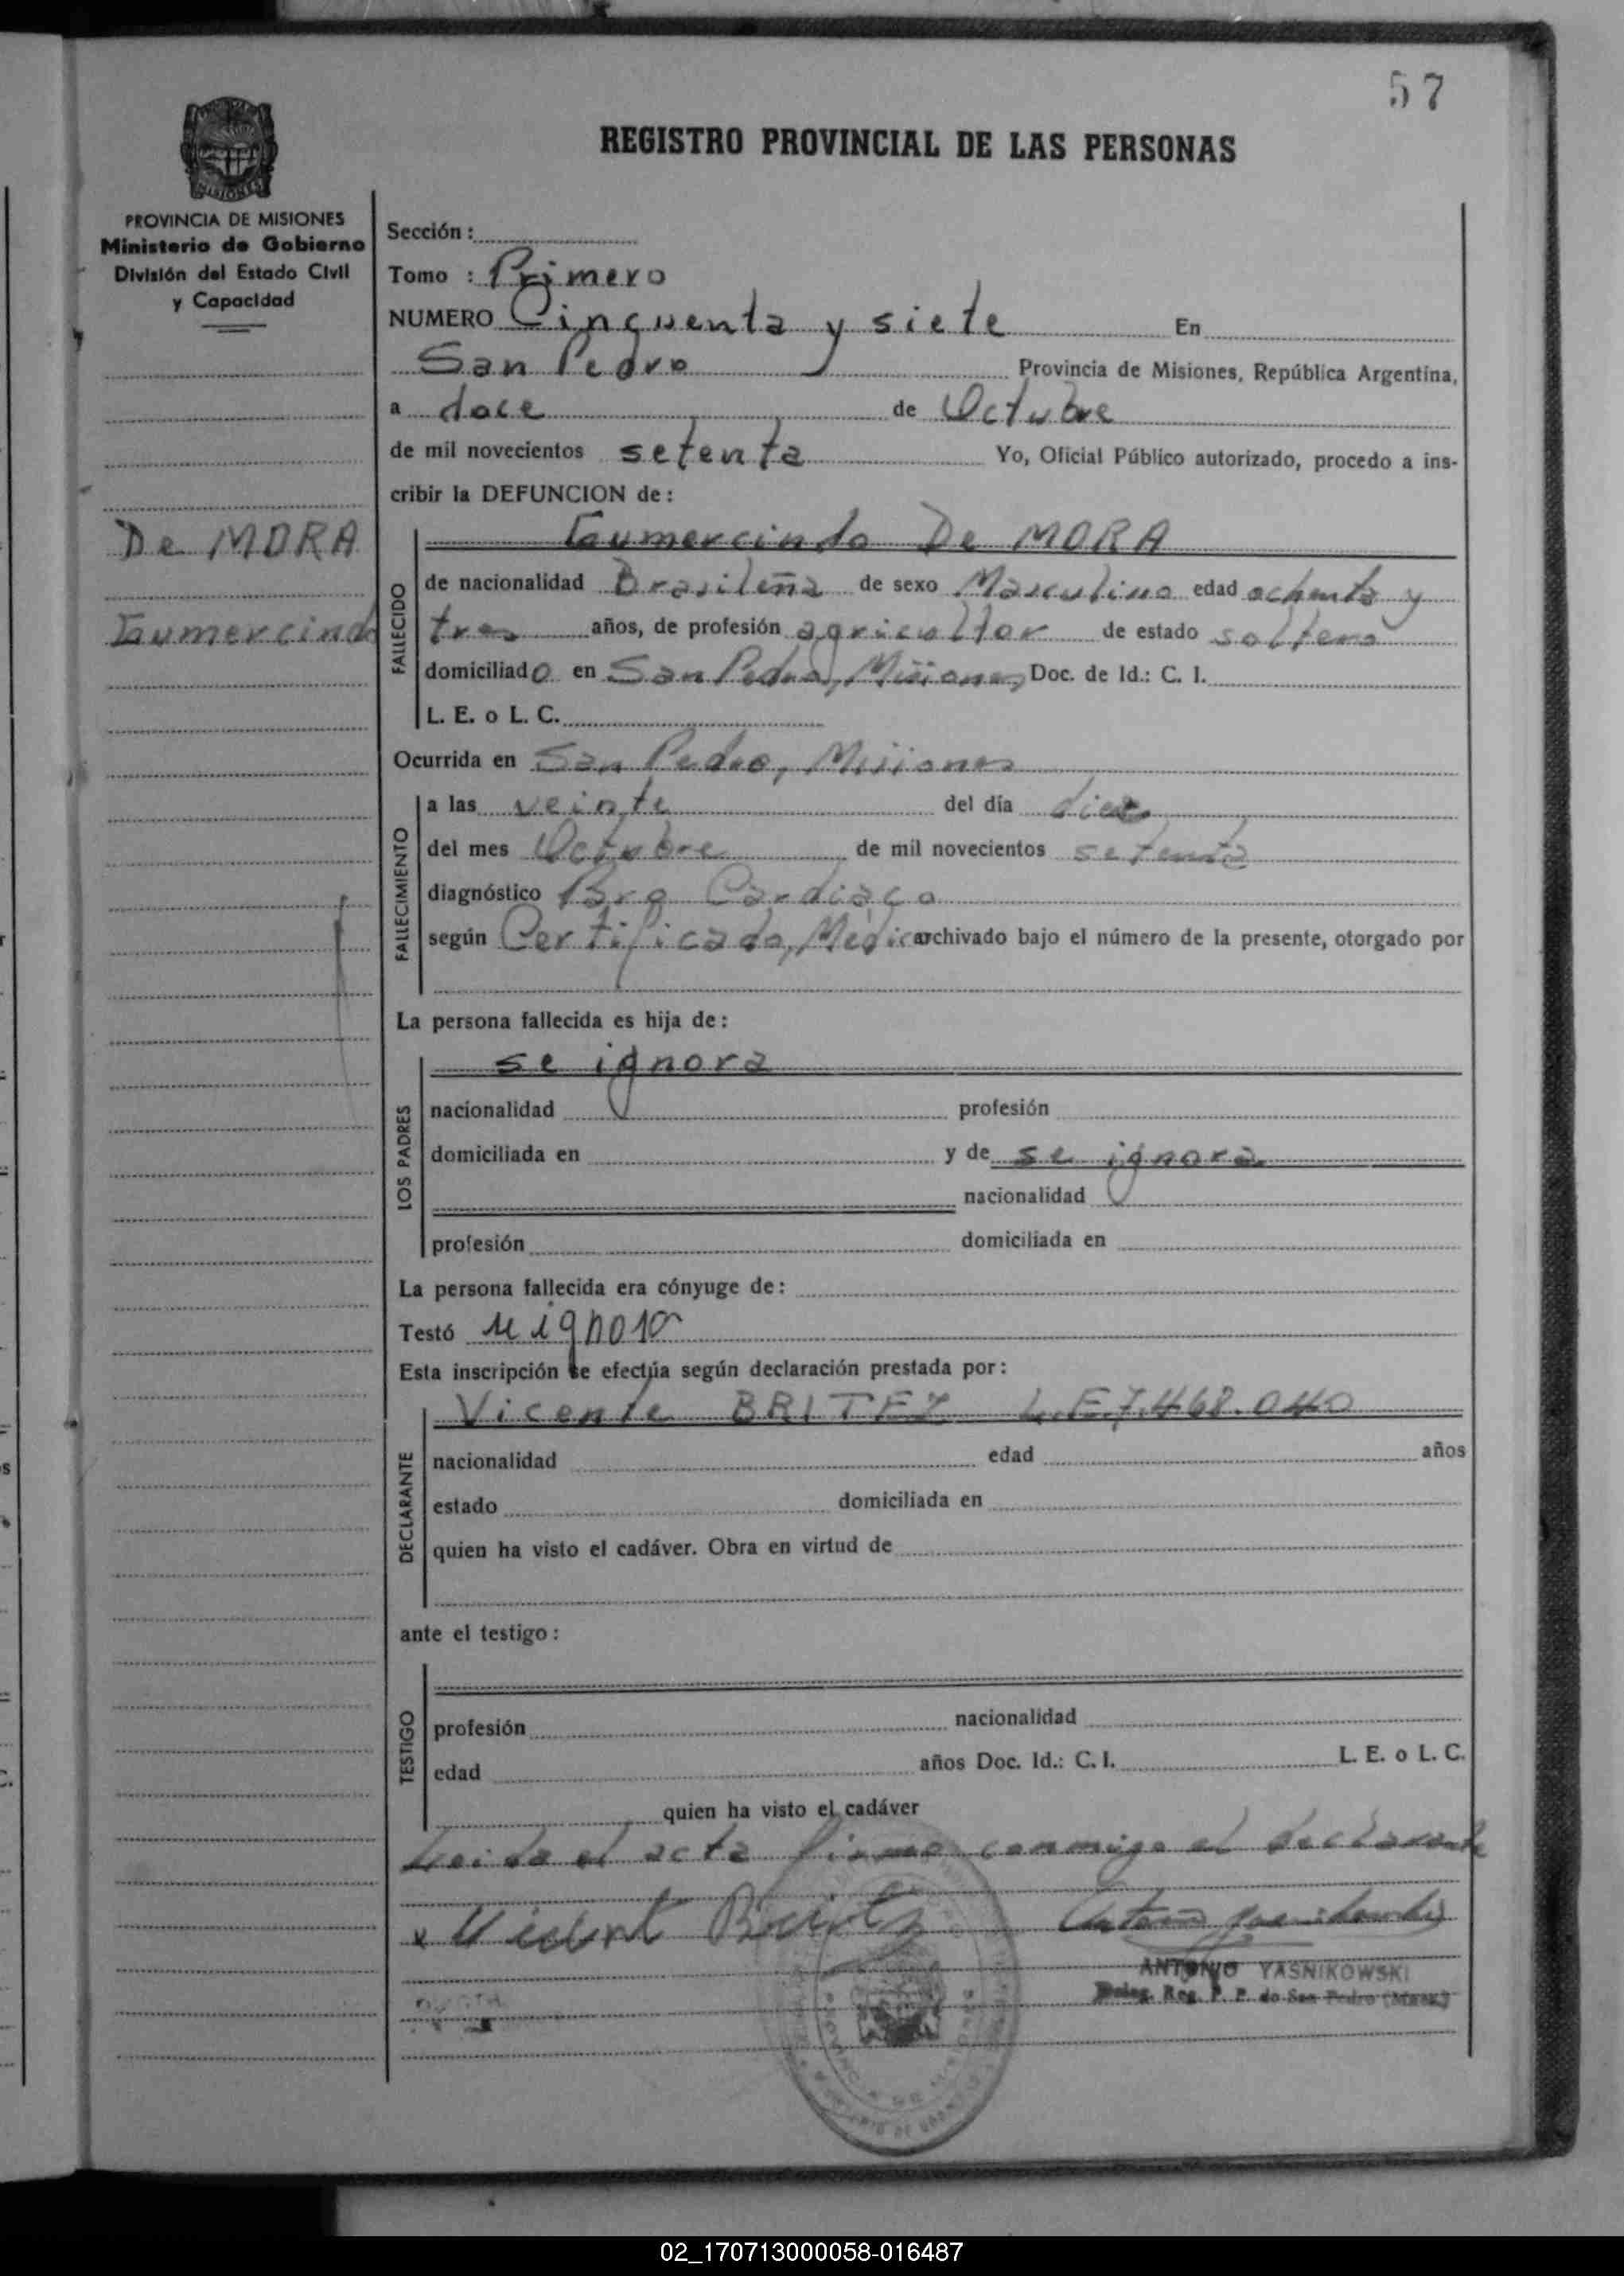 57
REGISTRO PROVINCIAL DE LAS PERSONAS
MISIONES
PROVINCIA DE MISIONES
Ministerio de Gobierno
División del Estado Civil
y Capacidad
De MORA
Taumercindo
Sección :
Tomo : Primero
NUMERO Cincuenta y siete En
San Pedro Provincia de Misiones, República Argentina,
a doce de Octubre
de mil novecientos setenta Yo, Oficial Público autorizado, procedo a ins-
cribir la DEFUNCION de :
Taumercindo De MORA
FALLECIDO
de nacionalidad Brasileña de sexo Masculino edad ochenta y
tres años, de profesión agricultor de estado soltero
domiciliado en San Pedro, Misiones Doc. de Id.: C. I.
L. E. o L. C.
Ocurrida en San Pedro, Misiones
FALLECIMIENTO
a las veinte del día diez
del mes Octubre de mil novecientos setenta
diagnóstico Cardiaco
según Certificado Medico archivado bajo el número de la presente, otorgado por
La persona fallecida es hija de :
LOS PADRES
se ignora
nacionalidad profesión
domiciliada en y de se ignora
nacionalidad
profesión domiciliada en
La persona fallecida era cónyuge de :
Testó se ignora
Esta inscripción se efectúa según declaración prestada por :
DECLARANTE
Vicente BRITEZ L.E.7.468.040
nacionalidad edad años
estado domiciliada en
quien ha visto el cadáver. Obra en virtud de
ante el testigo :
TESTIGO
profesión nacionalidad
edad años Doc. Id.: C. I. L. E. o L. C.
quien ha visto el cadáver
Leida el acta firma conmigo el declarante
x Vicent Britez
ANTONIO YASNIKOWSKI
Deleg. Reg. P. P. de San Pedro (Mnes.)
02_170713000058-016487